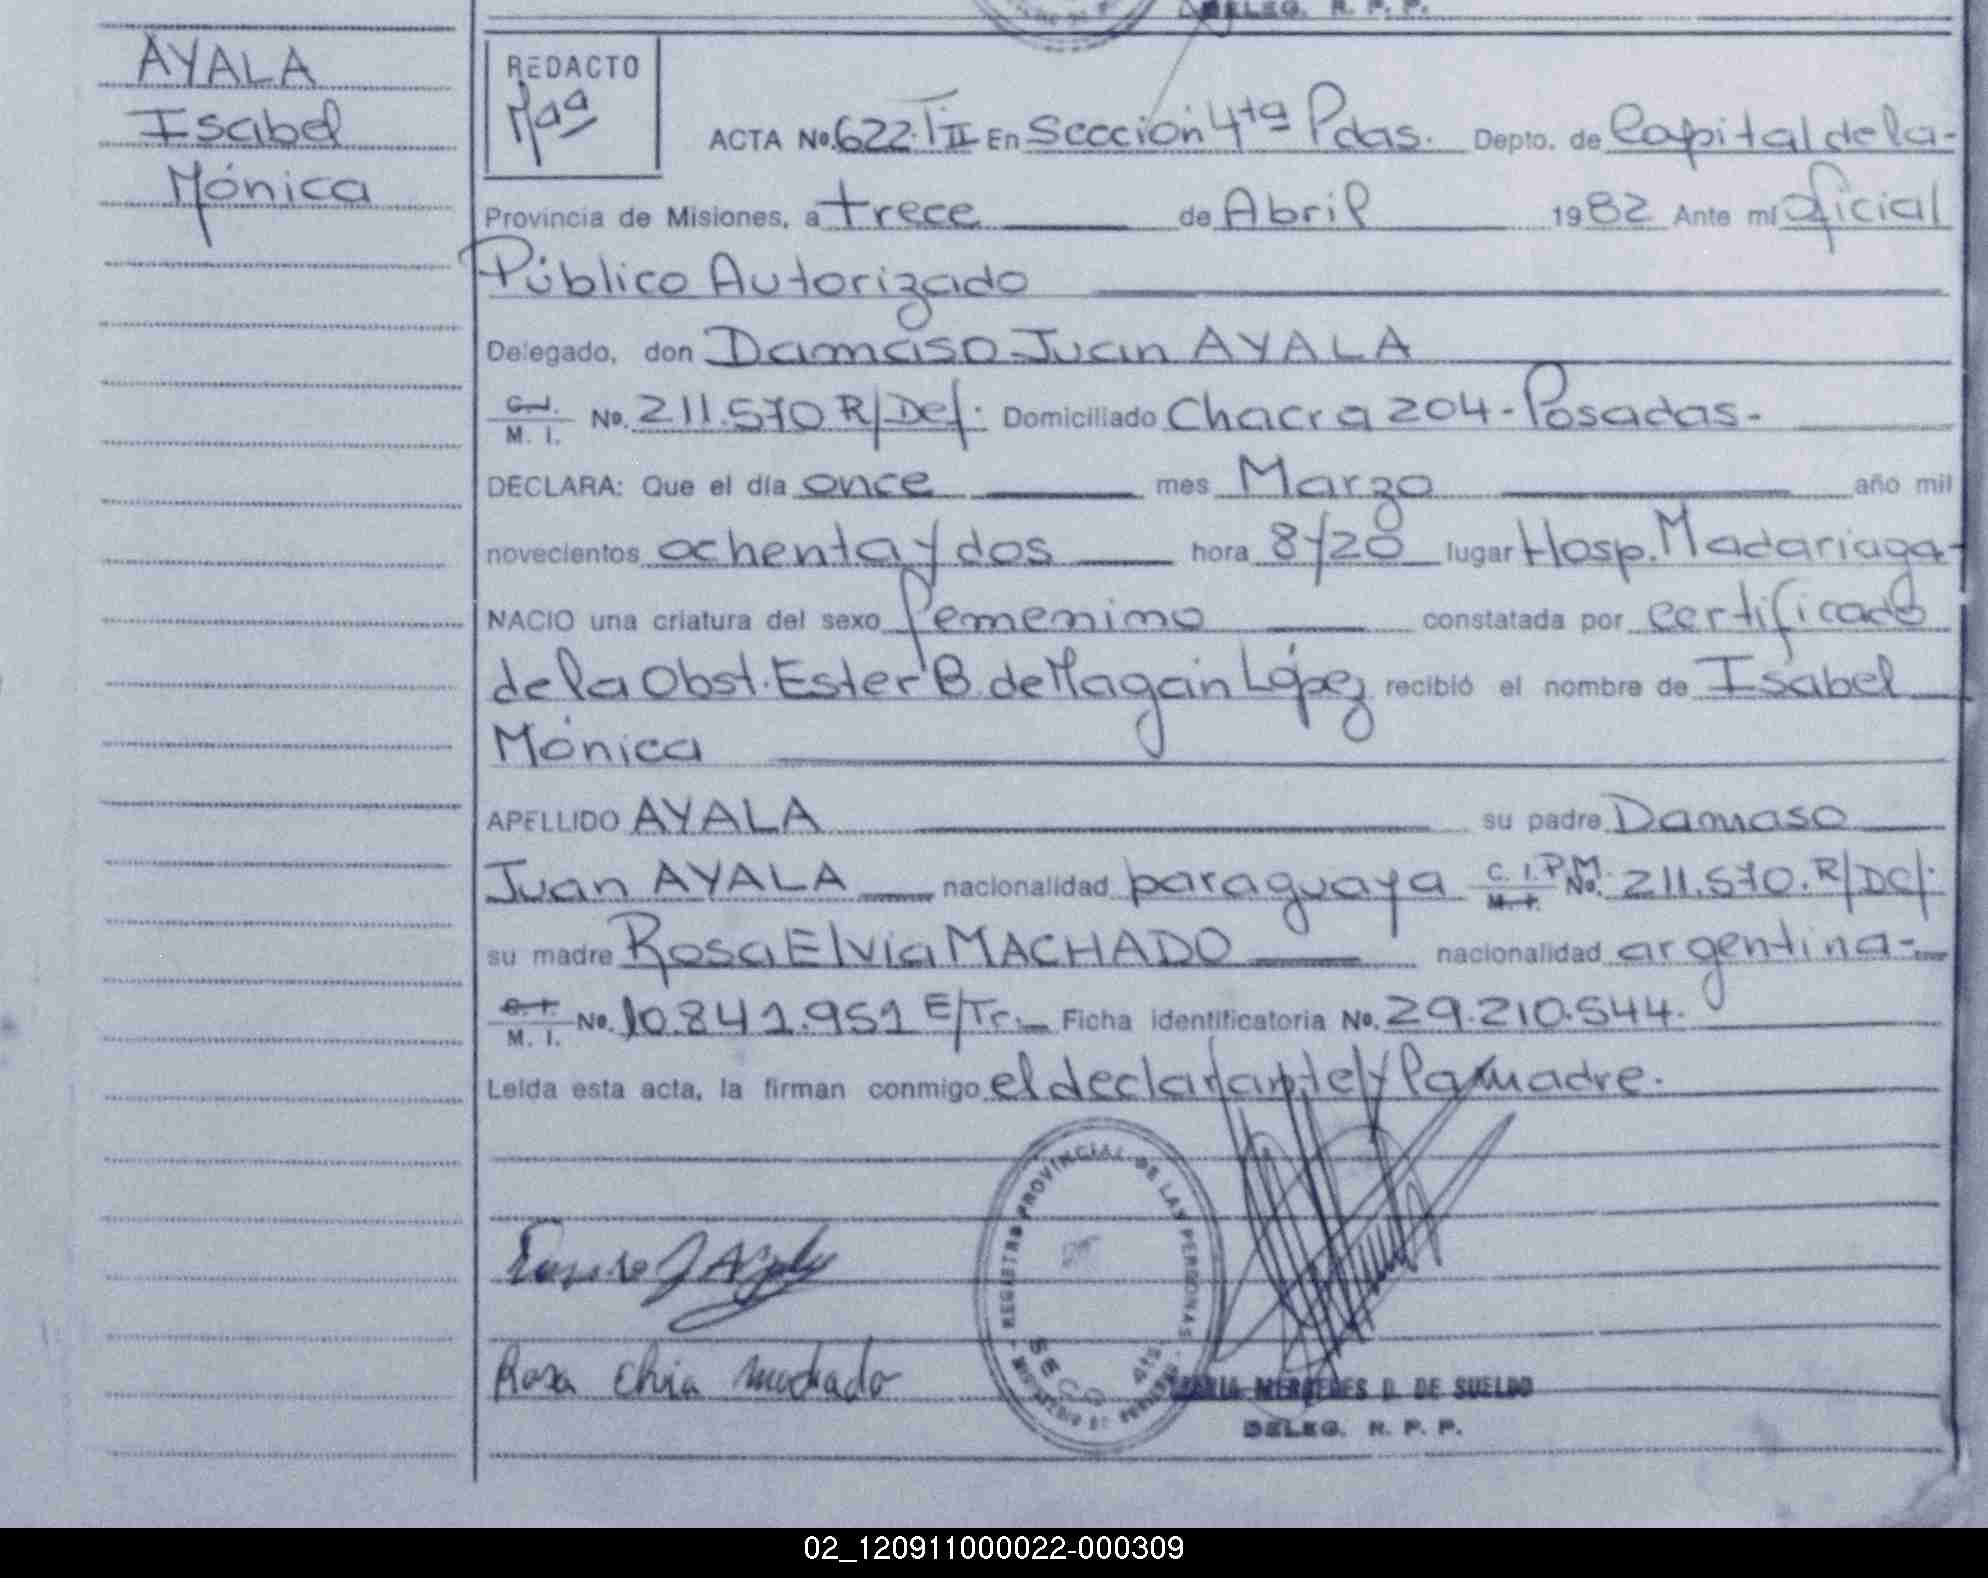 DELEG. R. P. P.
AYALA
Isabel
Mónica
REDACTO
ACTA No. 622. T II En Sección 4ta Pdas. Depto. de Capital de la-
Provincia de Misiones, a trece de Abril 1982 Ante mí oficial
Público Autorizado
Delegado, don Damaso Juan AYALA
C. I. M. I. No. 211.570 R/Def. Domiciliado Chacra 204-Posadas-
DECLARA: Que el día once mes Marzo año mil
novecientos ochenta y dos hora 8y20 lugar Hosp. Madariaga-
NACIO una criatura del sexo femenino constatada por certificado
de la Obst. Ester B. de Magán López recibió el nombre de Isabel
Mónica
APELLIDO AYALA su padre Damaso
Juan AYALA nacionalidad paraguaya C. I. P.M. M. I. No. 211.570. R/Def.
su madre Rosa Elvia MACHADO nacionalidad argentina-
C. I. M. I. No. 10.841.951 E/Tr. Ficha identificatoria No. 29.210.544.
Leída esta acta, la firman conmigo el declarante y la madre.
REGISTRO PROVINCIAL DE LAS PERSONAS
Rosa Elvia Machado
MARIA MERCEDES D. DE SUELDO
DELEG. R. P. P.
02_120911000022-000309